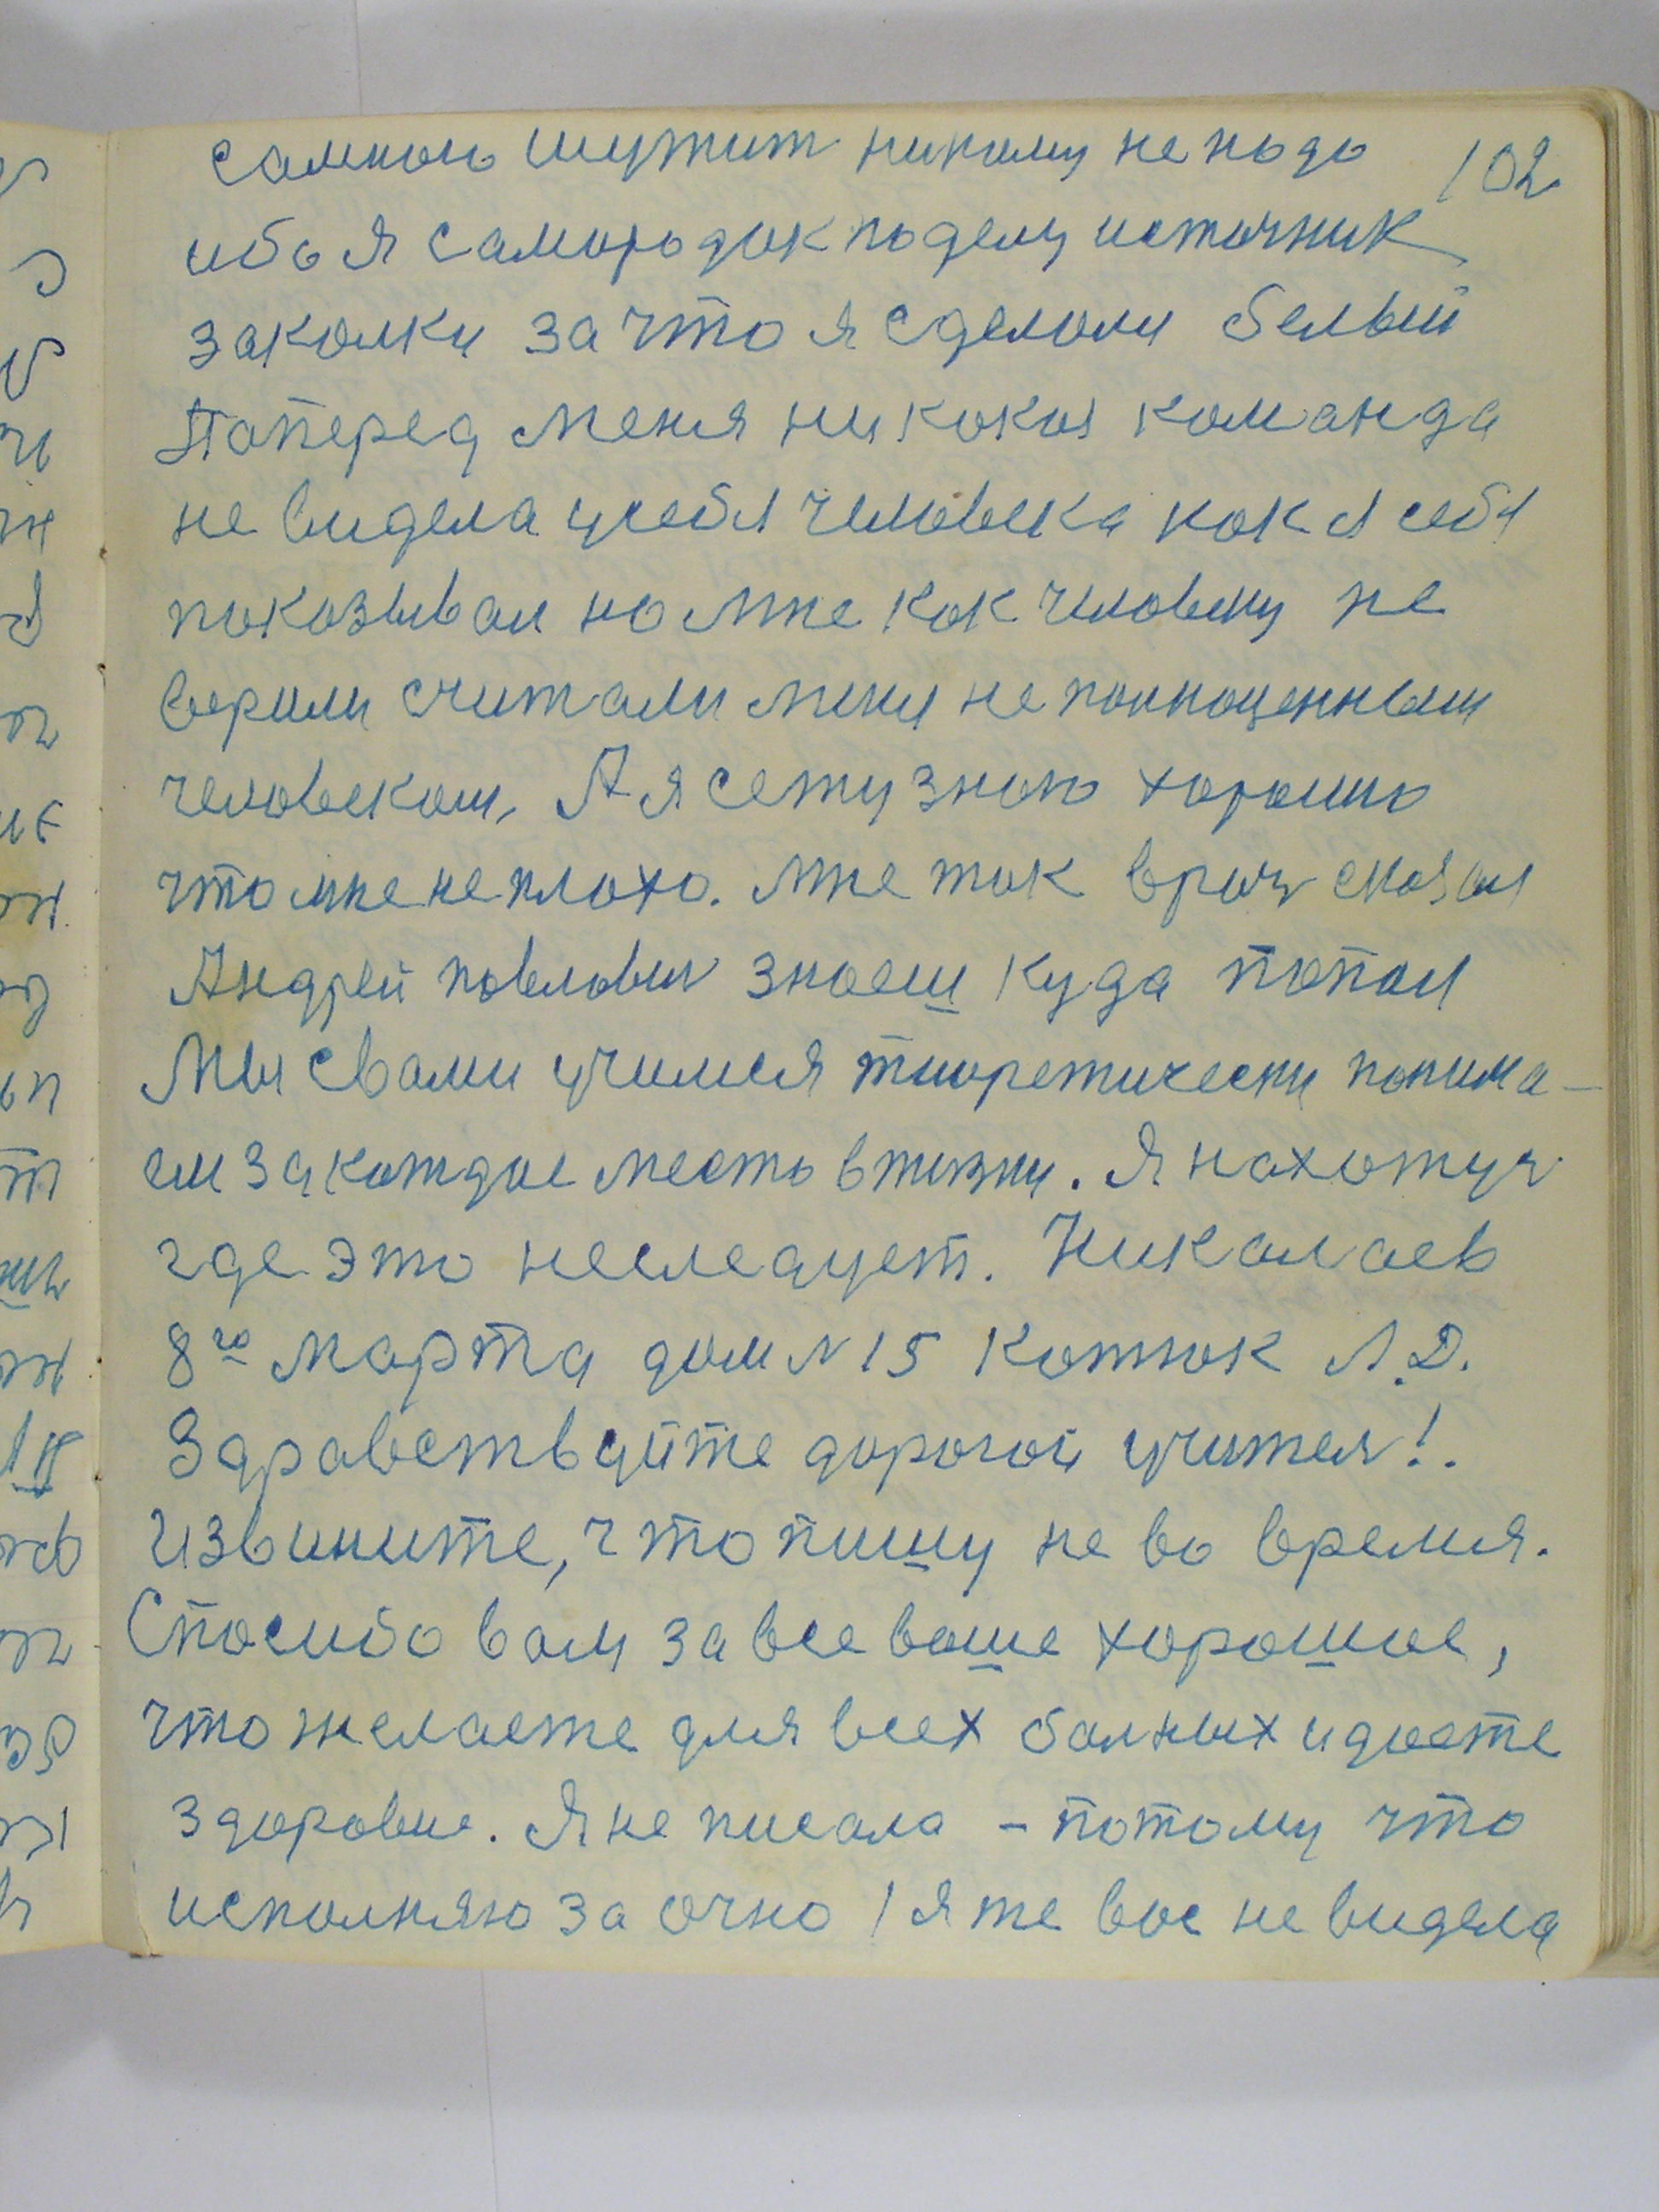 самною шутит никому не надо 102
ибо я самородок по делу источник
закалки за что я сделали белый
Поперед меня ни кокоя команда
не видела усебя человека как я себя
показывал но мне как человеку не
верили считали меня не полноценным
человеком, А я сежу знаю хорошо
что мне не плохо. Мне так врач сказал
Андрей павлович знаеш куда попал
Мы свами учимся тиоретически понима-
ем за каждое место в жизни. Я нахожуя
где это неследует. Никалаев
8го марта дом N 15 Котюк Л.Д.
Здравствуйте дорогой учитель!.
Извините, что пишу не во время.
Спасибо вам за все ваше хорошое,
что желаете для всех больных и даете
здоровие. Я не писала - потому что
исполняю за очно / я же вас не видела